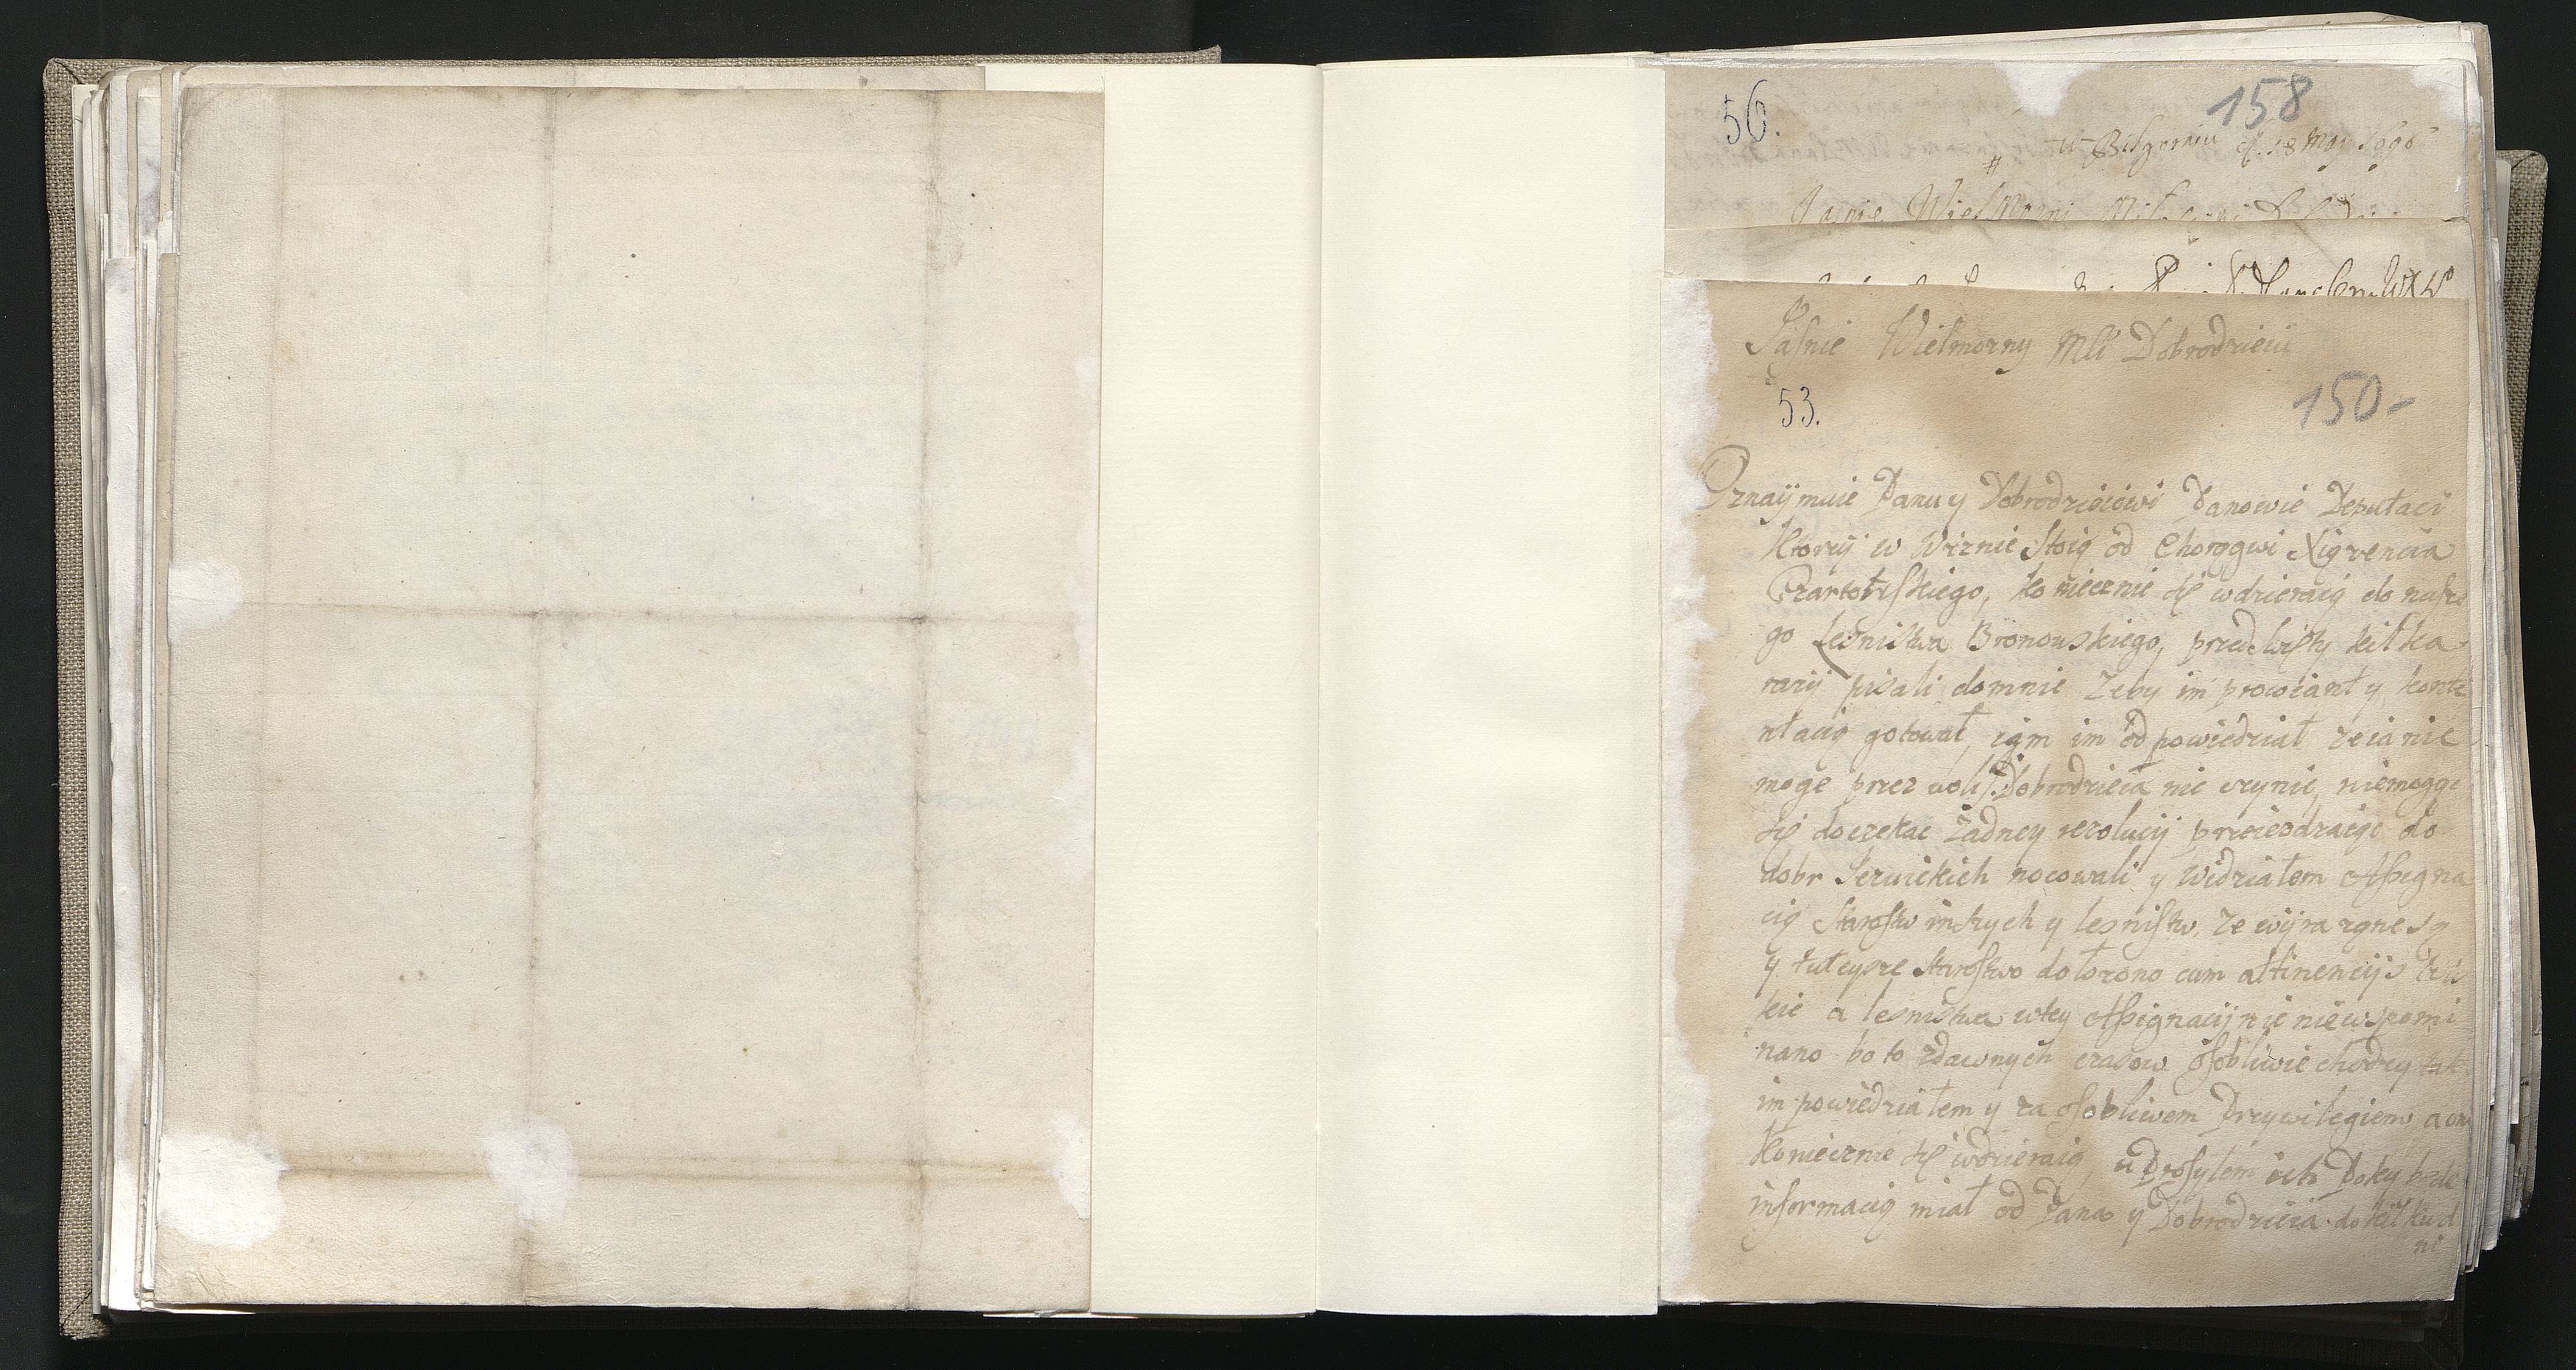 56.
158
w Bilgoraiu d. 18 Maj 1696
Jasnie Wielmozni
Jaſnie Wielmozny Mći Dobrodzieiu
53.
150-
Oznaÿmuie Panu y Dobrodzieiowi Panowie Deputaci
Ktorzÿ w Wiznie Stoią od Chorągwi Xiązencia
Czartoryſkiego, koniecznie się wdzieraią do naſze
go Lesnistwa Bronowskiego, przedtwiſty kilka
razÿ pisali domnie Zeby im prowiant y konte
ntacią gotował, iam im odpowiedział ze ia nic
moge przez woli P. Dobrodzieia nic czynic, niemogąc
się doczekac Zadney rezolucij przeiezdzaiąc do
dobr Jezuickich nocowali y Widziałem Aſsigna
cią Staroſtw inszych y lesniſtw, ze wÿrazne są
y tuteysze Staroſtwo dołozono cum attinencijs
kie a lesnistwa wtey Aſsignacij nic niewspomi
nano bo to zdawnych czasow oſobliwie chodzy tak
im powiedziałem y za oſobliwem Przywilegiem a oni
Koniecznie się wdzieraią, uproſylem ich Poky będe
informacią miał od Pana y Dobrodzieia do kilku d
ni